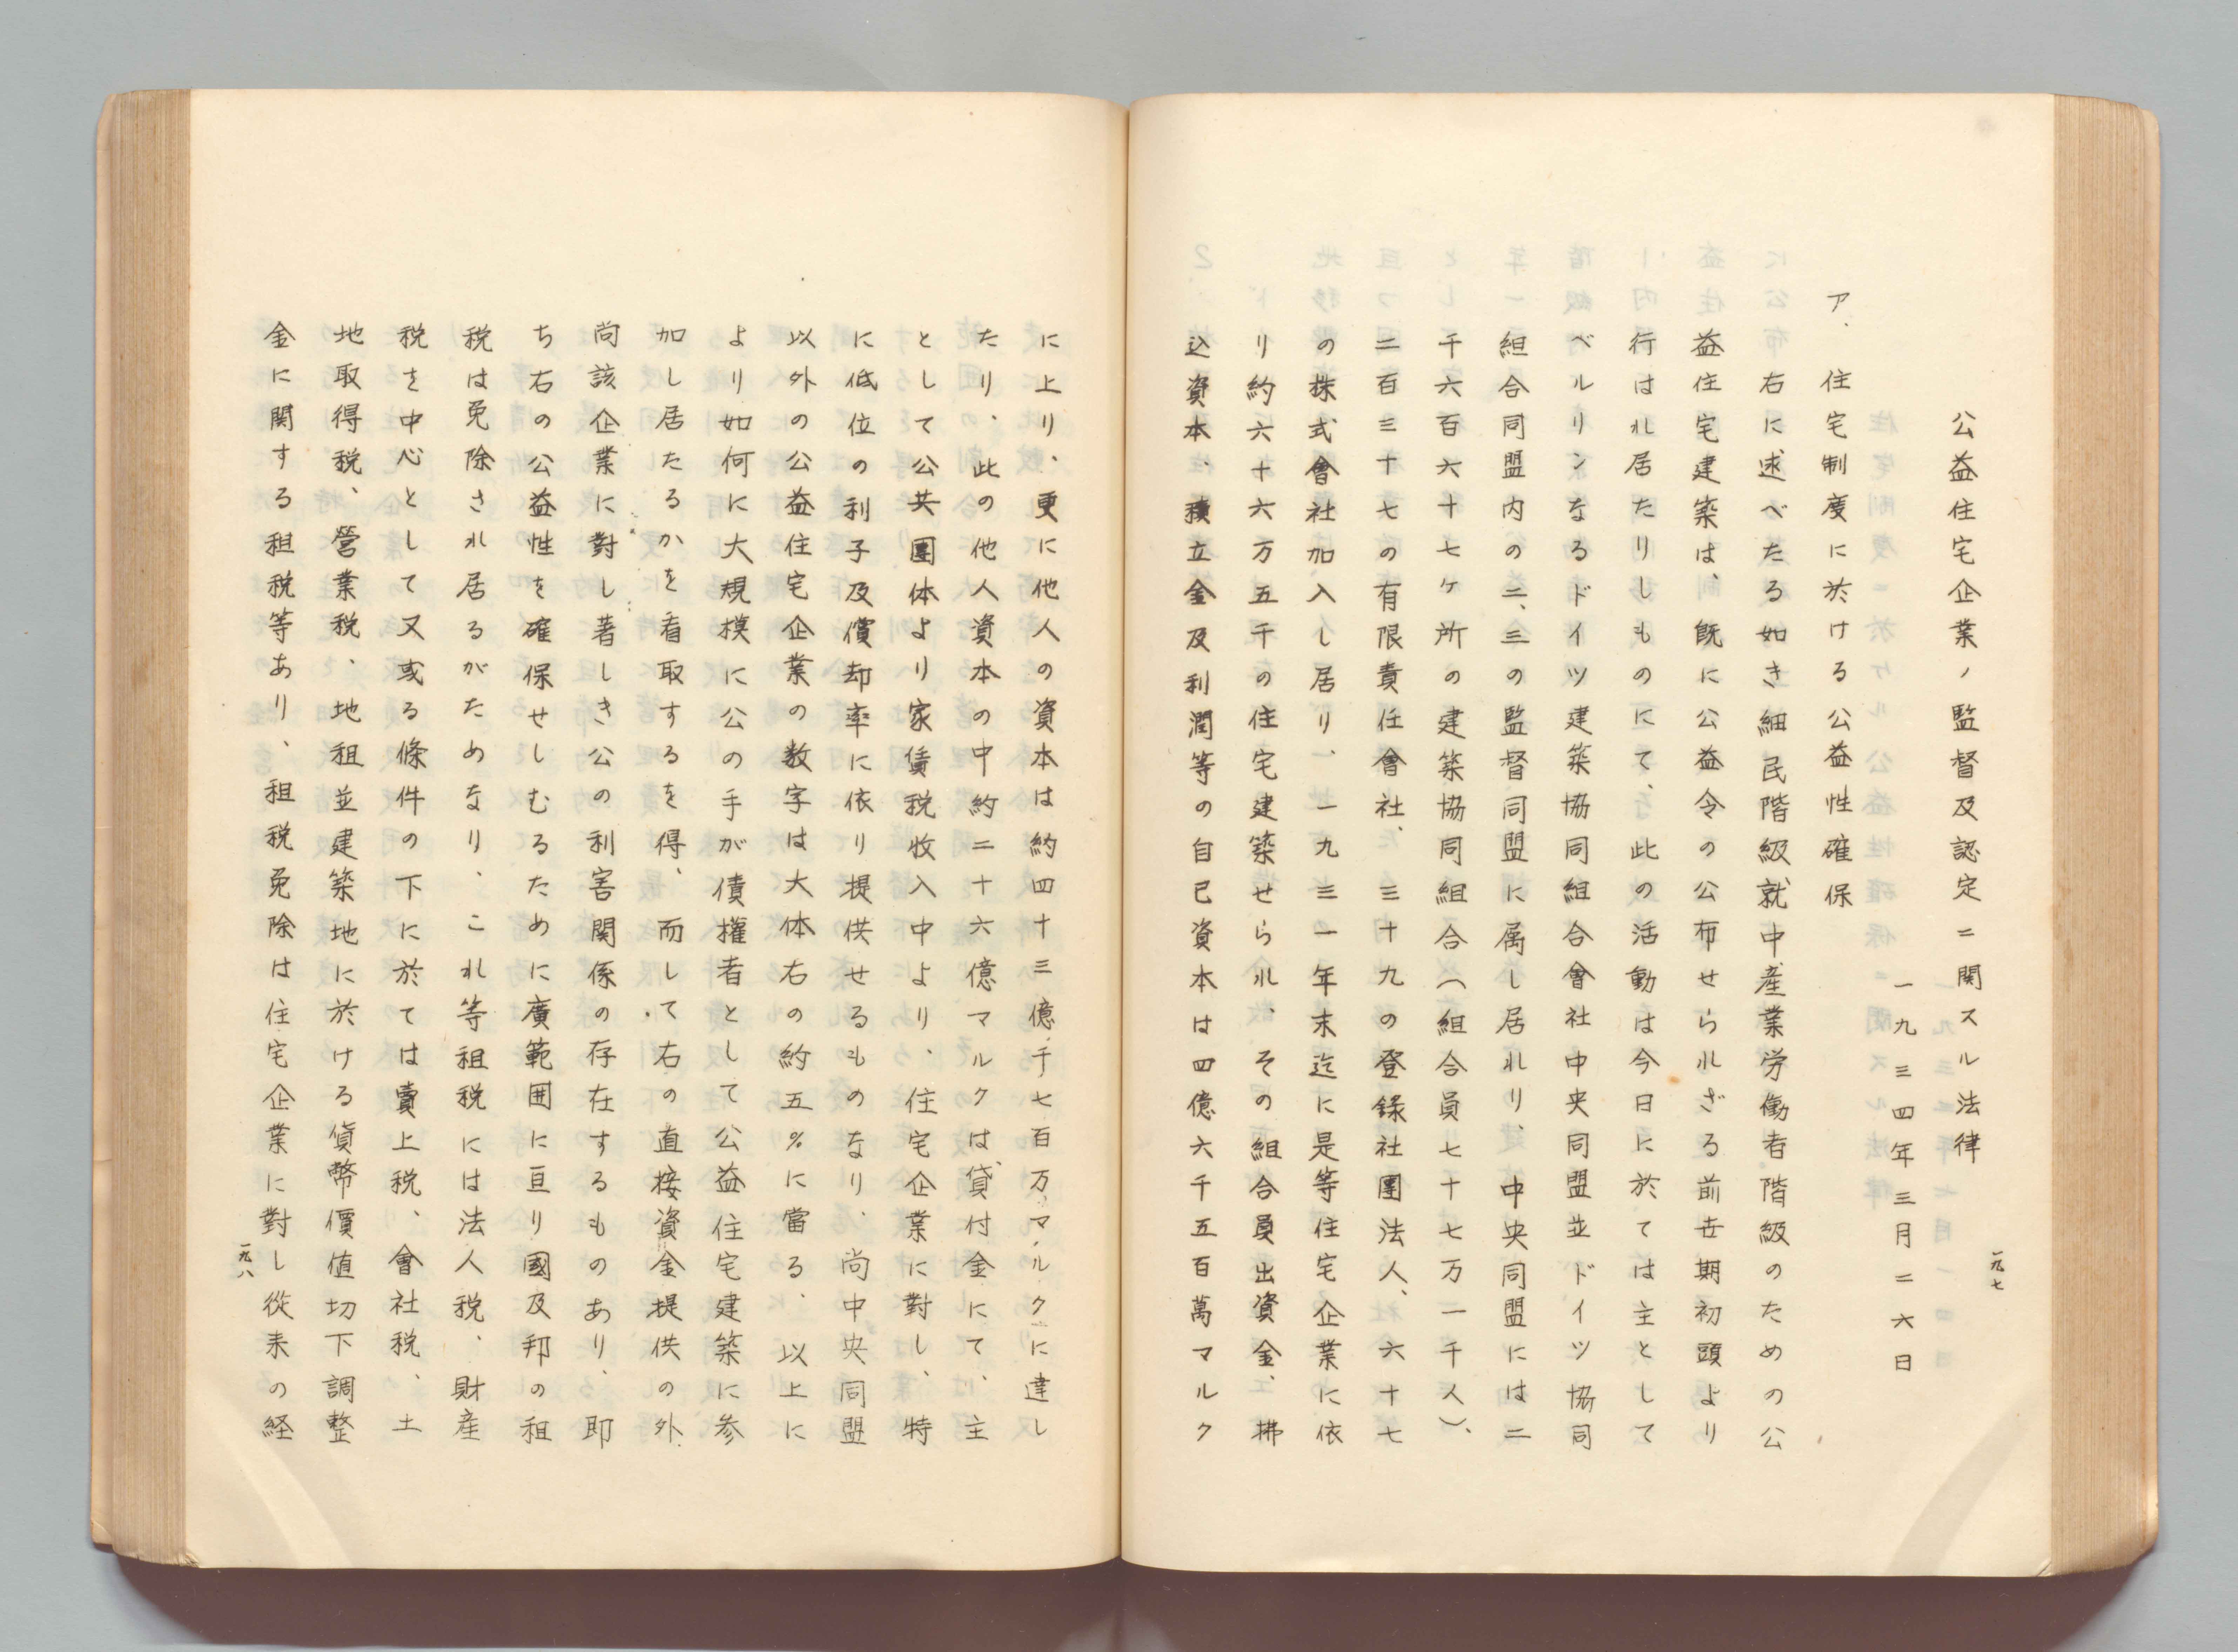 公益住宅企業ノ監督及認定ニ関スル法律
一九三四年三月二六日
ア、住宅制度に於ける公益性確保
右に述べたる如き細民階級就中産業労働者階級のための公
益住宅建築は、既に公益令の公布せられざる前世期初頭より
行はれ居たりしものにて、此の活動は今日に於ては主として
ベルリンなるドイツ建築協同組合會社中央同盟並ドイツ協同
組合同盟内の二、三の監督同盟に属し居れり、中央同盟には二
千六百六十七ヶ所の建築協同組合（組合員七十七万一千人）、
二百三十七の有限責任會社、三十九の登録社團法人、六十七
の株式會社加入し居り、一九三一年末迄に是等住宅企業に依
り約六十六万五千の住宅建築せられ、その組合員出資金、拂
込資本、積立金及利潤等の自己資本は四億六千五百萬マルク
一九七
に上り、更に他人の資本は約四十三億千七百万マルクに達し
たり、此の他人資本の中約二十六億マルクは貸付金にて、主
として公共團体より家賃税收入中より、住宅企業に對し、特
に低位の利子及償却率に依り提供せるものなり、尚中央同盟
以外の公益住宅企業の数字は大体右の約五％に當る、以上に
より如何に大規模に公の手が債權者として公益住宅建築に参
加し居たるかを看取するを得、而して右の直接資金提供の外
尚該企業に對し著しき公の利害関係の存在するものあり、即
ち右の公益性を確保せしむるために廣範囲に亘り國及邦の租
税は免除され居るがためなり、これ等租税には法人税、財産
税を中心として又或る條件の下に於ては賣上税、會社税、土
地取得税、營業税、地租並建築地に於ける貨幣價値切下調整
金に関する租税等あり、租税免除は住宅企業に對し從来の経
一九八